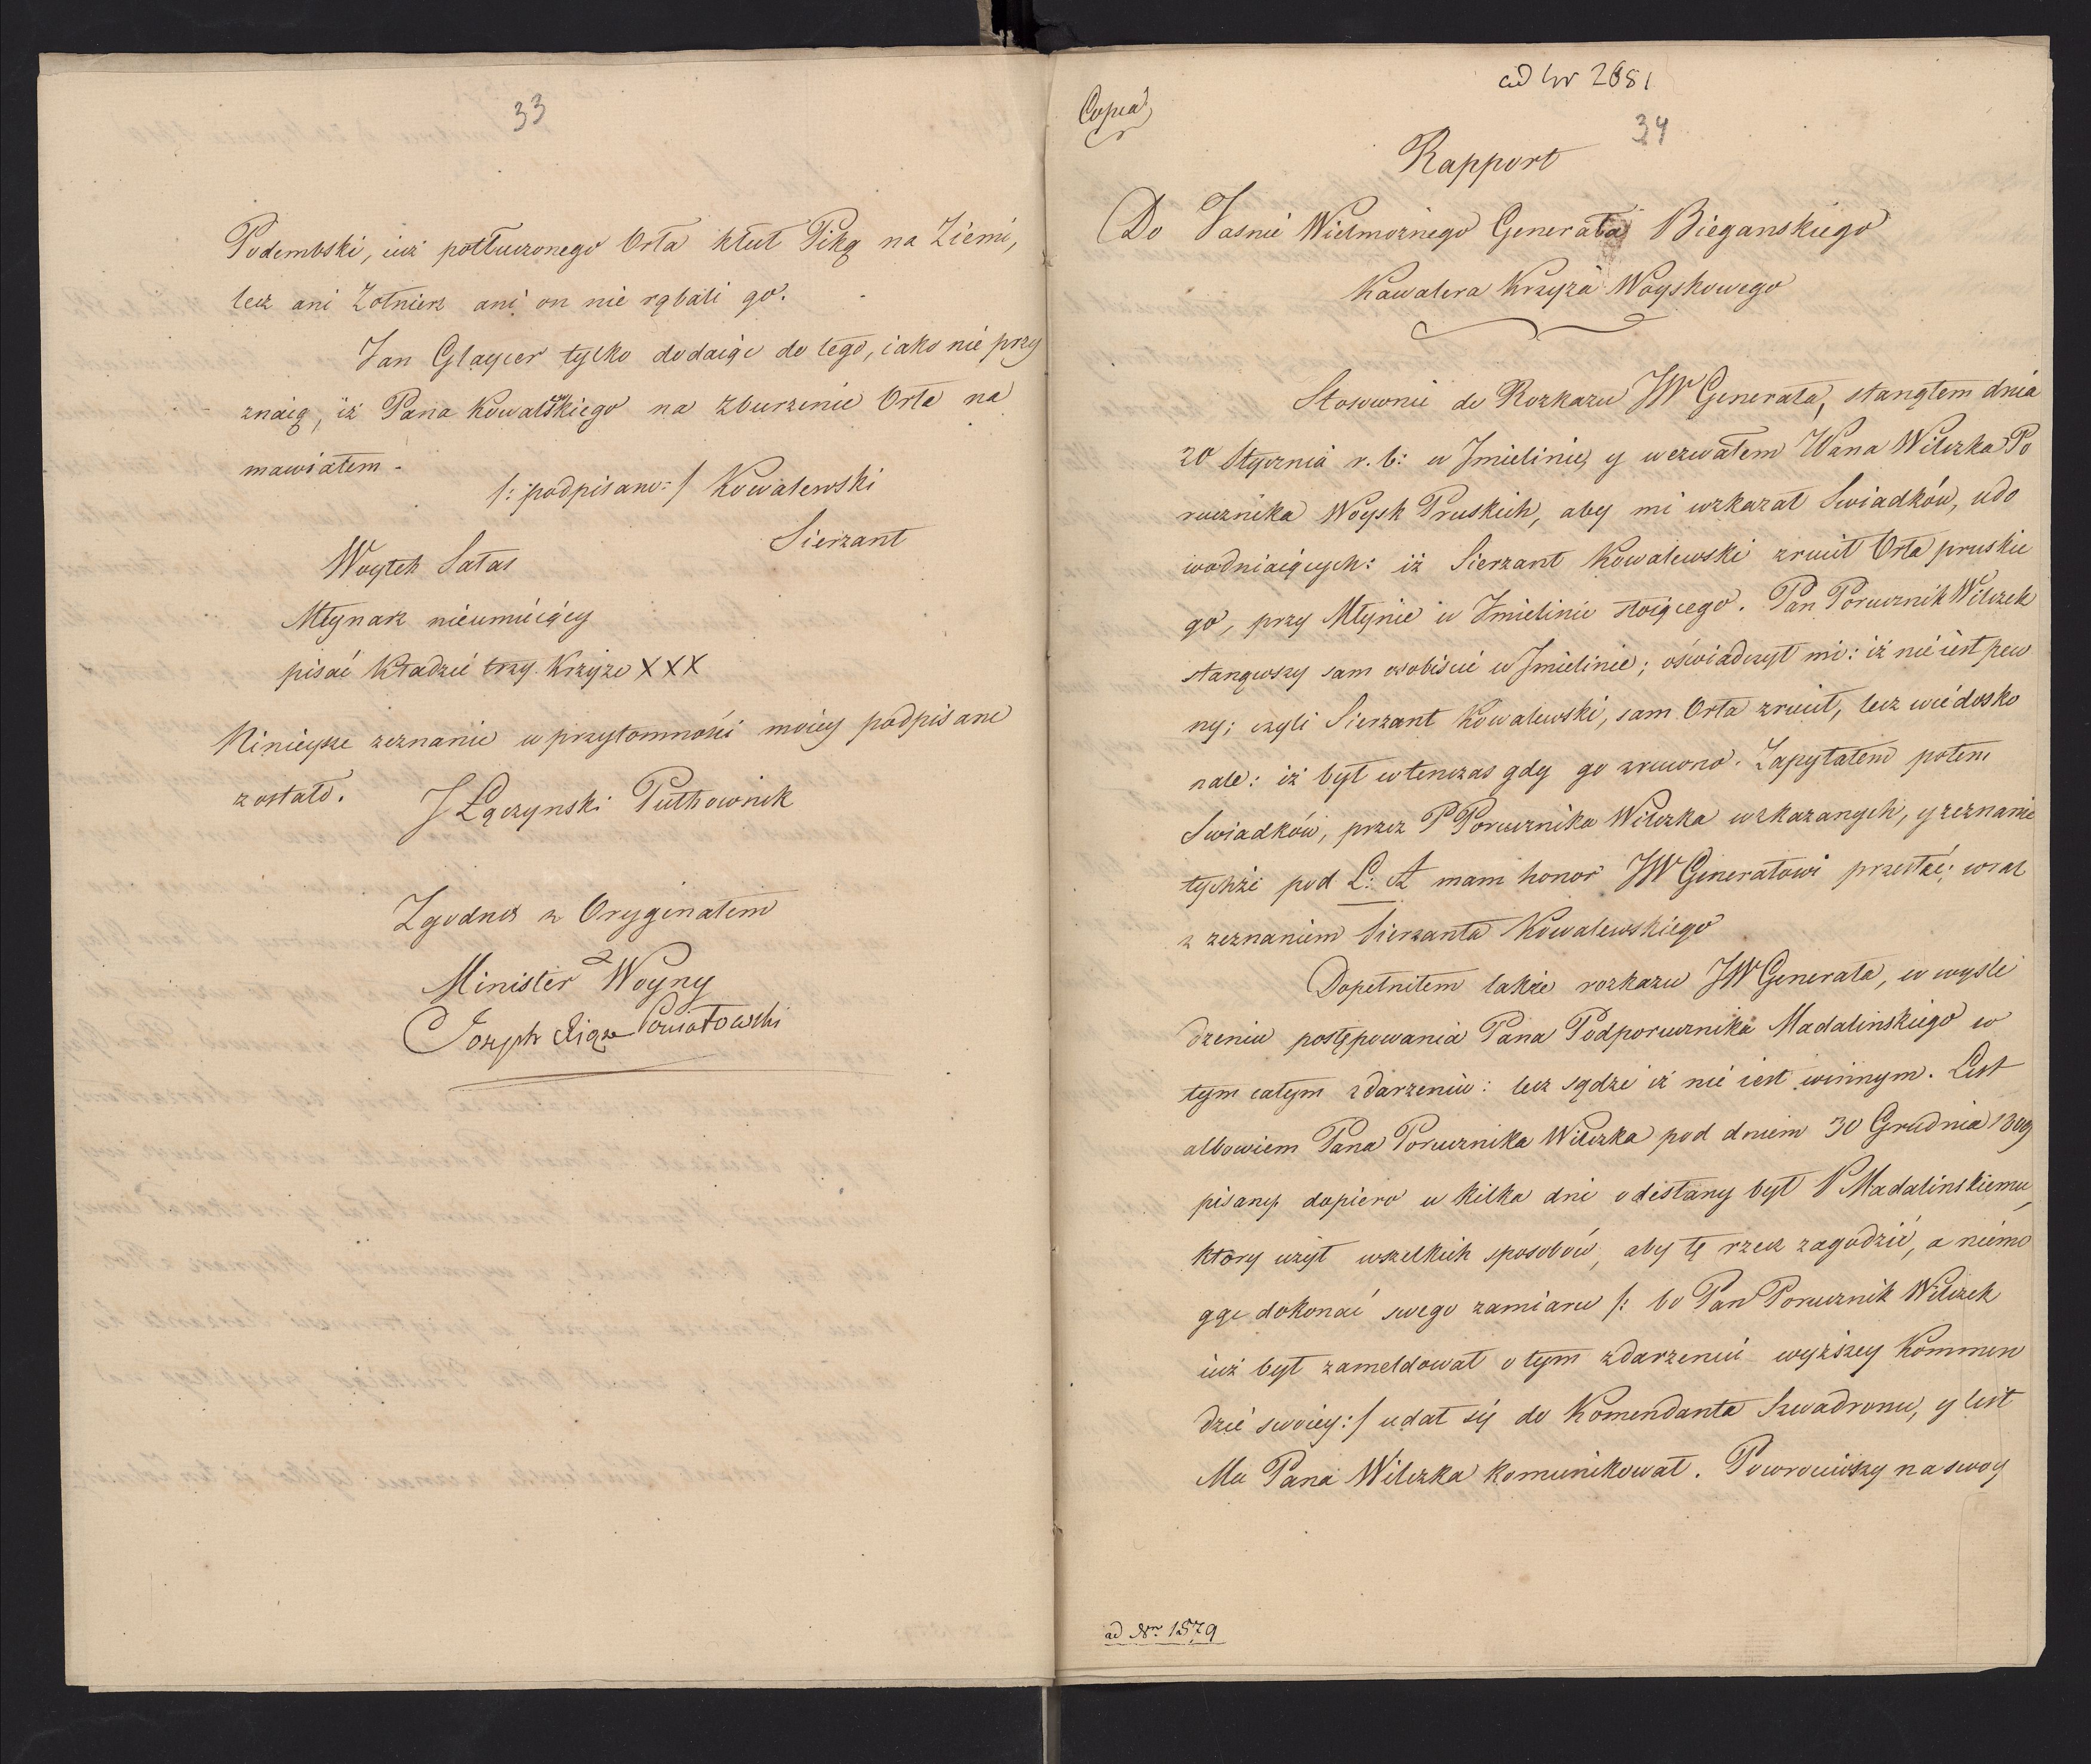 33
Podembski, iuż potłuczonego Orła kłuł Piką na Ziemi,
lecz ani Zołnierz ani on nie rąbali go.
Jan Glaycer tylko dodaiąc do tego, iako nie przy
znaią, iż Pana Kowalewskiego na zburzenie Orła na
mawiałem.
/: podpisano :/ Kowalewski
Sierzant
Woytek Sałas
Młynarz nieumieiący
pisać kładzie trzy Krzyże XXX
Ninieysze zeznanie w przytomności moiey podpisane
zostało.
J Łączynski Pułkownik
Zgodno z Oryginałem
Minister Woyny
Joseph Xiąże Poniatowski
ad Nr 2681
Copia
34
Rapport
Do Jasnie Wielmożnego Generała Bieganskiego
Kawalera Krzyża Woyskowego
Stosownie do Rozkazu JW Generała, stanąłem dnia
20 Stycznia r. b: w Jmielinie, y wezwałem WPana Wilczka Po
rucznika Woysk Pruskich, aby mi wskazał Swiadków, udo
wodniaiących: iż Sierzant Kowalewski zrucił Orła pruskie
go, przy Młynie w Jmielinie stoiącego. Pan Porucznik Wilczek
stanąwszy sam osobiscie w Jmielinie; oświadczył mi: iż nie iest pew
ny; czyli Sierzant Kowalewski, sam Orła zrucił, lecz wie dosko
nale: iż był wtenczas gdy go zrucono. Zapytałem potem
Swiadków, przez P Porucznika Wilczka wskazanych, y zeznanie
tychże pod L: A mam honor JW Generałowi przesłać; wraz
z zeznaniem Sierzanta Kowalewskiego
Dopełniłem także rozkazu JW Generała, w wyśle
dzeniu postępowania Pana Podporucznika Madalinskiego w
tym całym zdarzeniu: lecz sądze iż nie iest winnym. List
albowiem Pana Porucznika Wilczka pod dniem 30 Grudnia 1809
pisany dopiero w kilka dni odesłany był P Madalinskiemu,
ktory użył wszelkich sposobów, aby tę rzecz zagodzić, a niemo
gąc dokonać swego zamiaru /: bo Pan Porucznik Wilczek
iuż był zameldował o tym zdarzeniu wyższey Kommen
dzie swoiey :/ udał się do Komendanta Szwadronu, y list
Mu Pana Wilczka komunikował. Powrociwszy na swoy
ad Nro 1579